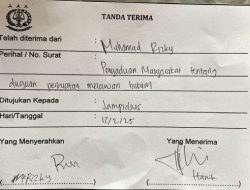 TANDA TERIMA
Telah diterima dari : Muhamad Rizky
Perihal / No. Surat : Pengaduan Masyarakat tentang
dugaan perbuatan melawan hukum
Ditujukan Kepada : Jampidsus
Hari/Tanggal : 17/2/25
Yang Menyerahkan
Yang Menerima
M RIZKY
Hanif